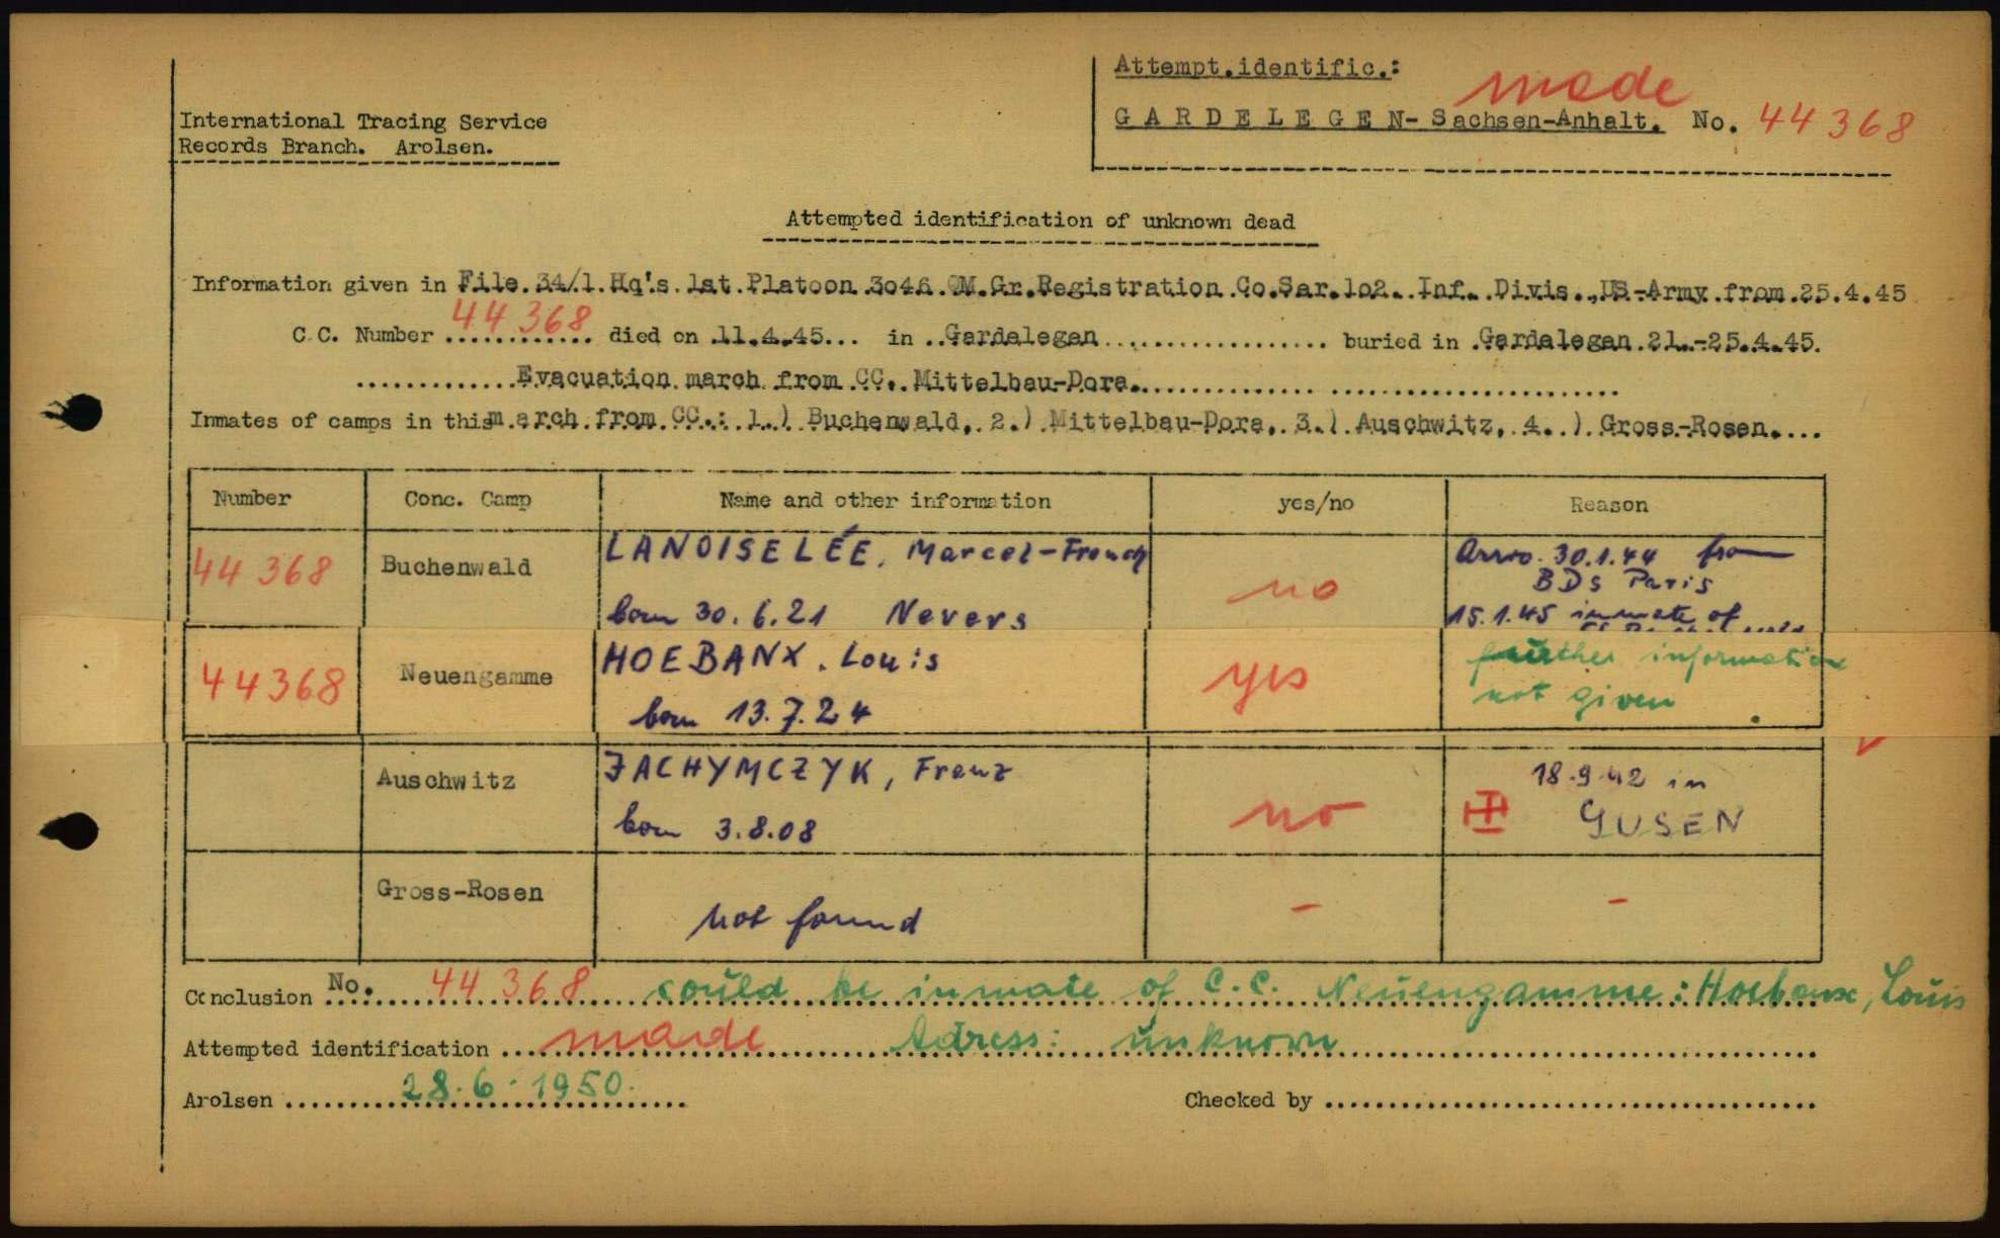 Attempt.identific.:
made
GARDELEGEN-Sachsen-Anhalt. No. 44368
International Tracing Service
Records Branch. Arolsen.
Attempted identification of unknown dead
Information given in File.34/1.Hq's.1st.Platoon.3046.QM.Gr.Registration.Co.Sar.1o2..Inf..Divis.,US-Army.from.25.4.45
C.C. Number 44368 died on .11.4.45... in ..Gardelegen.................. buried in .Gardelegen.21.-25.4.45.
.............Evacuation march from CC. Mittelbau-Dora..............................................
Inmates of camps in this march from CC.: 1.) Buchenwald, 2.) Mittelbau-Dora, 3.) Auschwitz, 4.) Gross-Rosen....
Number Conc. Camp Name and other information yes/no Reason
44368 Buchenwald LANOISELÉE, Marcel-French no Arrv. 30.1.44 from
BDS Paris
born 30.6.21 Nevers 15.1.45 inmate of
44368 Neuengamme HOEBANX, Louis yes further information
born 13.7.24 not given
Auschwitz JACHYMCZYK, Franz no 18.9.42 in
born 3.8.08 GUSEN
Gross-Rosen not found - -
Conclusion No. 44368 could be inmate of C.C. Neuengamme: Hoebanx, Louis
Attempted identification made Adress: unknown
Arolsen 28.6.1950. Checked by ........................................